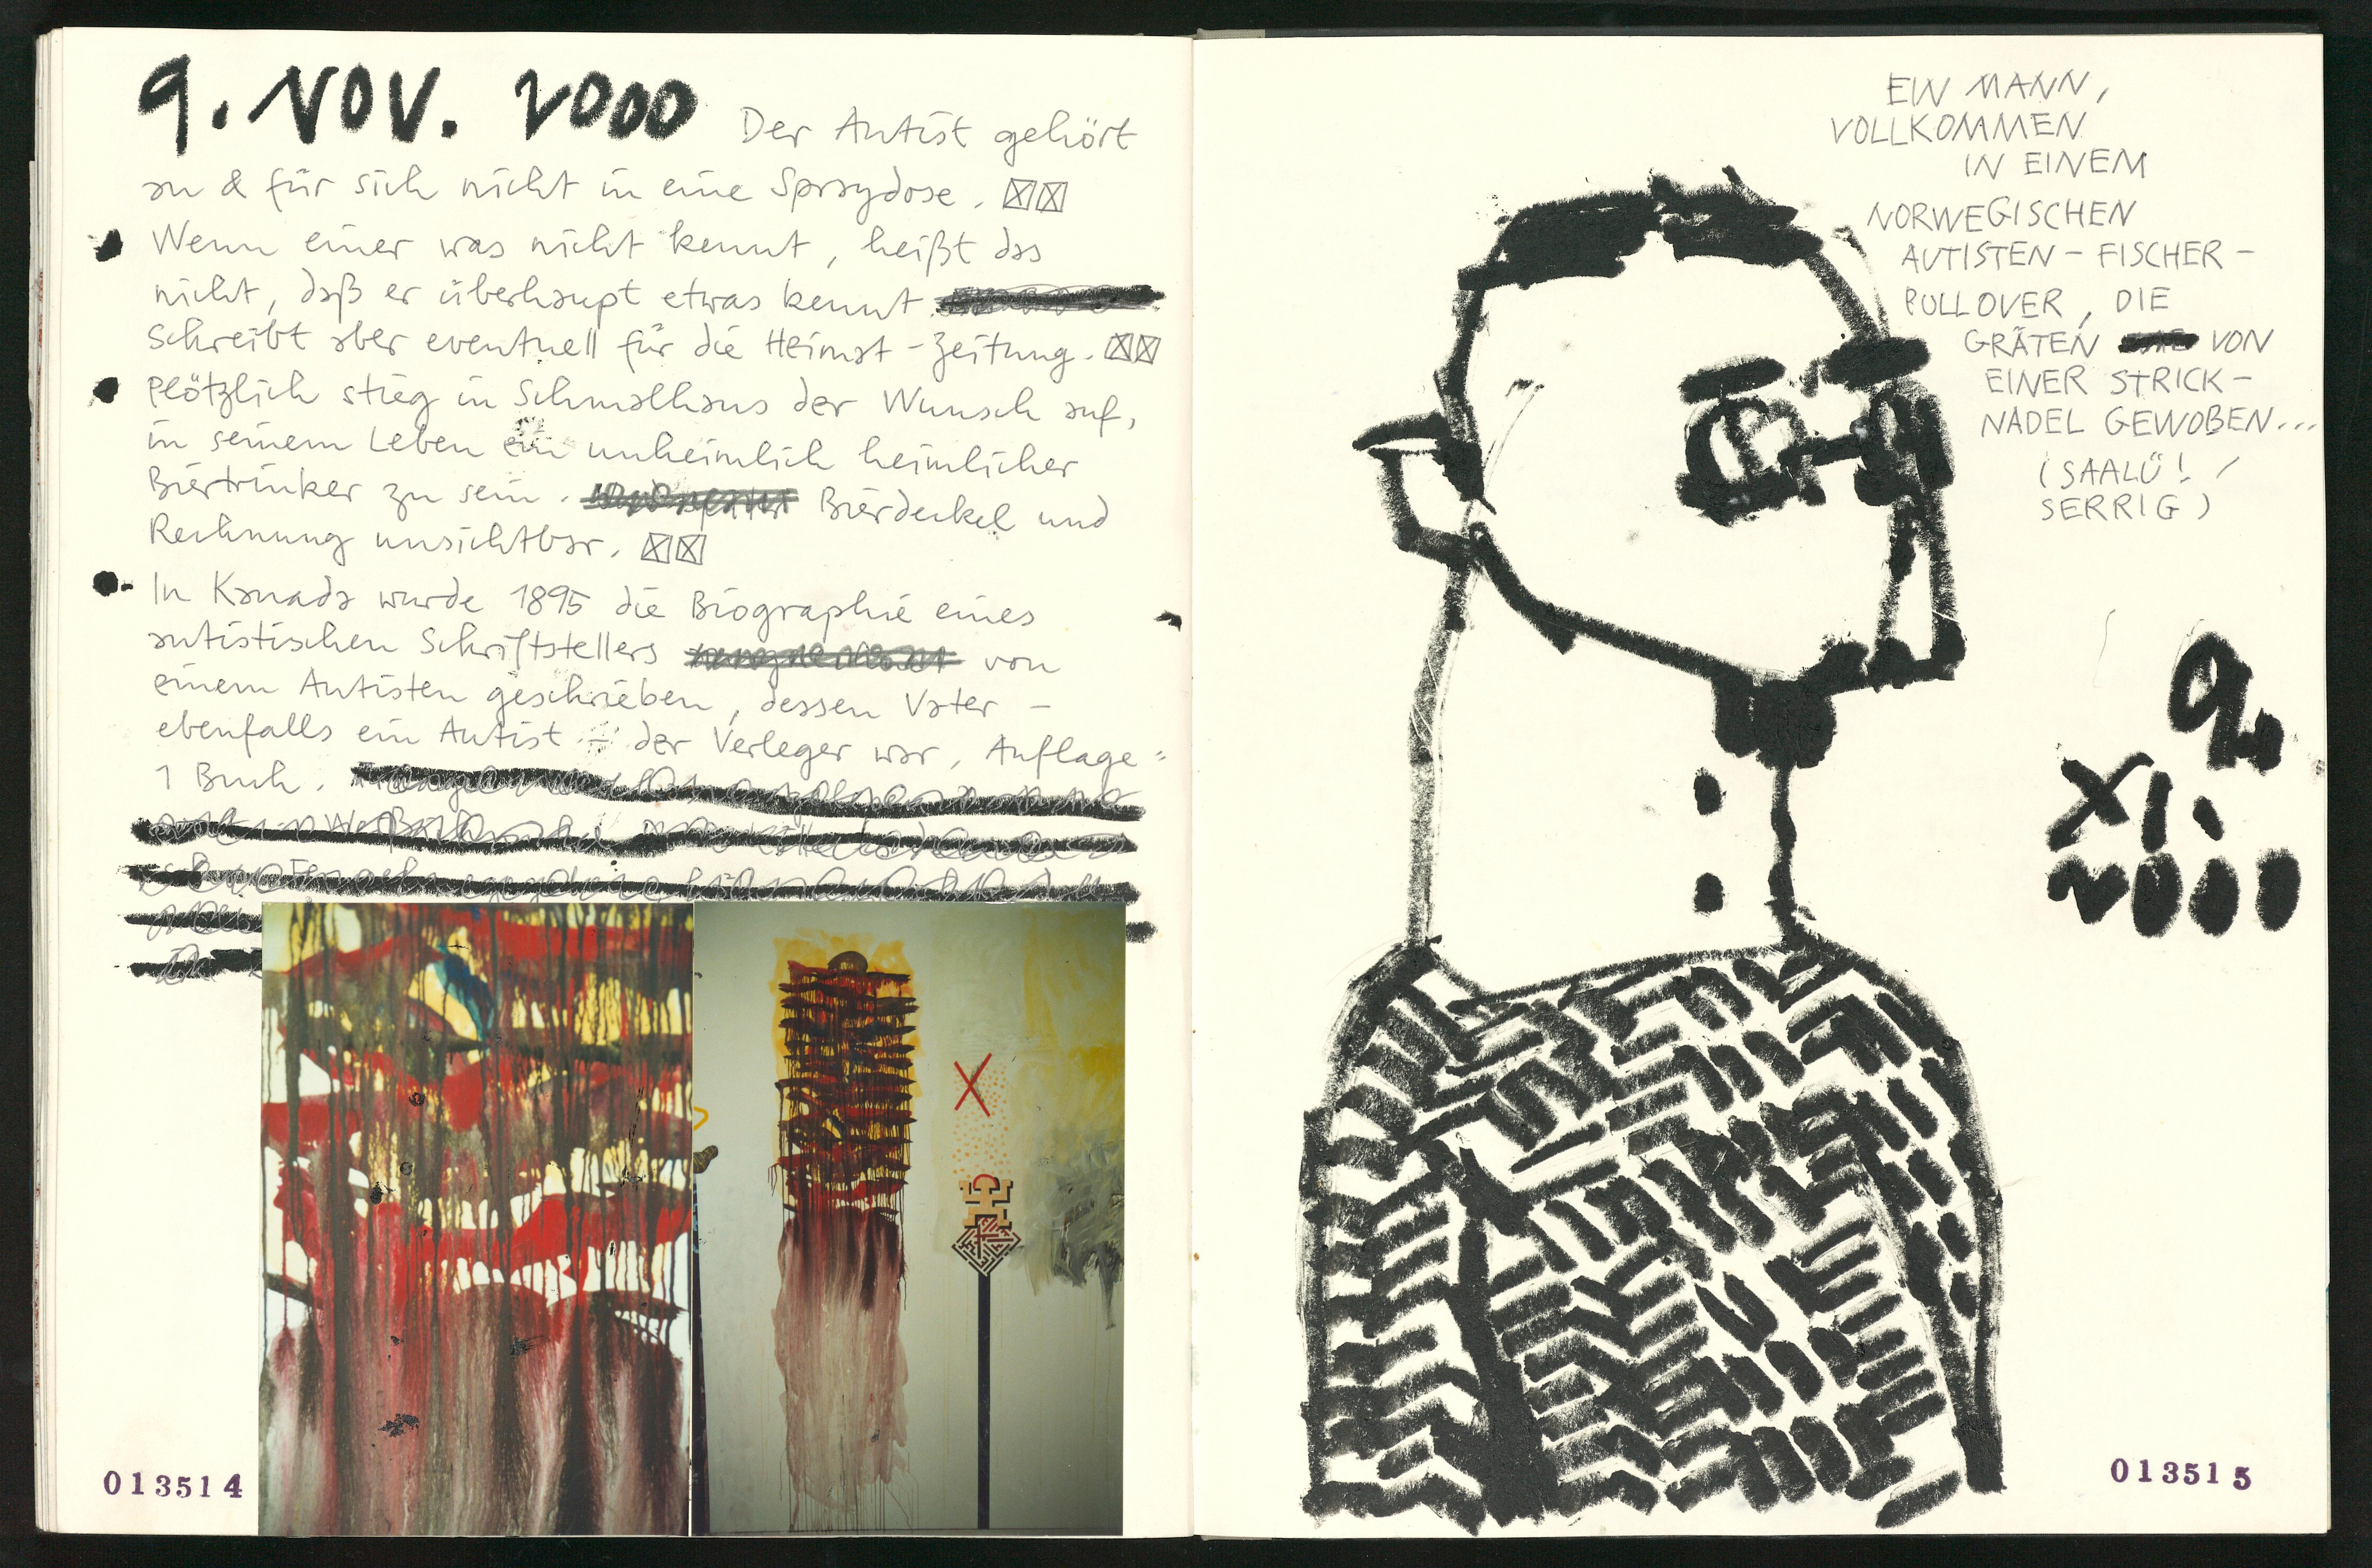 9. NOV. 2000 Der Autist gehört
an & für sich nicht in eine Spraydose.
Wenn einer was nicht kennt, heißt das
nicht, daß er überhaupt etwas kennt.
Schreibt aber eventuell für die Heimat-Zeitung.
Plötzlich stieg in Schmalhaus der Wunsch auf,
in seinem Leben ein unheimlich heimlicher
Biertrinker zu sein. Bierdeckel und
Rechnung unsichtbar.
In Kanada wurde 1895 die Biographie eines
autistischen Schriftstellers von
einem Autisten geschrieben, dessen Vater –
ebenfalls ein Autist – der Verleger war, Auflage =
1 Buch.
013514
EIN MANN,
VOLLKOMMEN
IN EINEM
NORWEGISCHEN
AUTISTEN – FISCHER –
PULLOVER, DIE
GRÄTEN VON
EINER STRICK –
NADEL GEWOBEN...
(SAALÜ! /
SERRIG)
9.
XI.
2000
013515